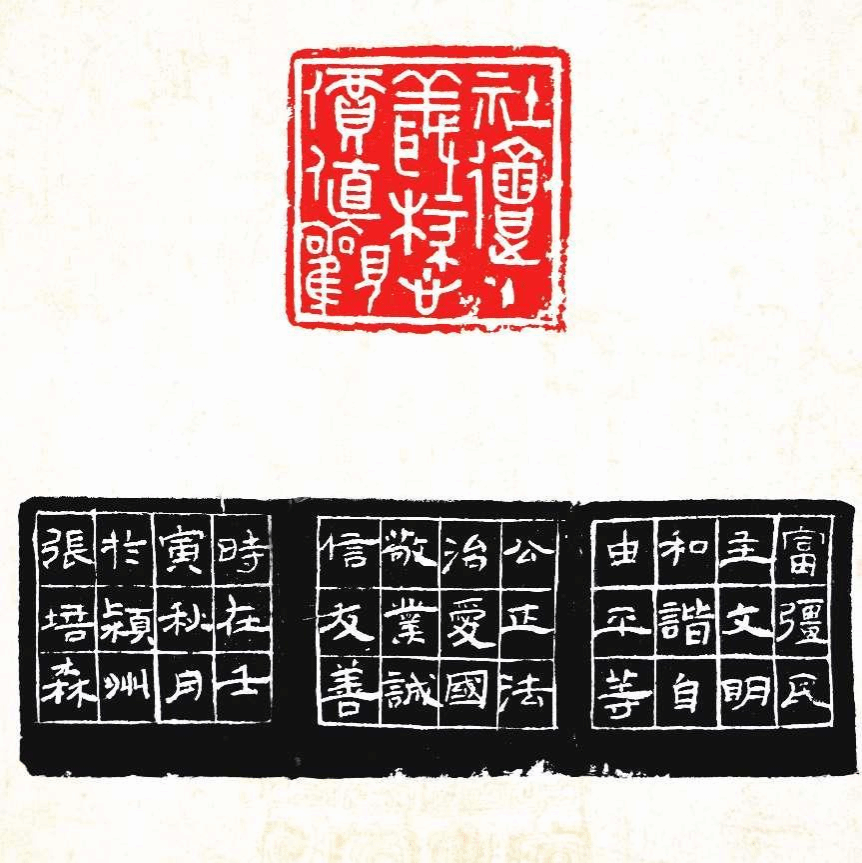 社會主
義核心
價值觀
富彊民
主文明
和諧自
由平等
公正法
治愛國
敬業誠
信友善
時在壬
寅秋月
於潁州
張培森